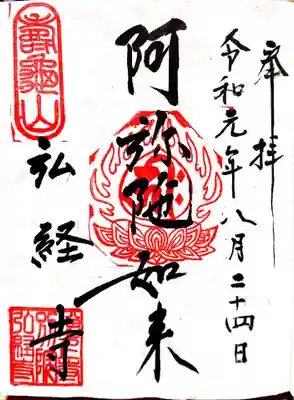 奉拝
令和元年八月二十四日
阿弥陀如来
寿亀山
弘経寺